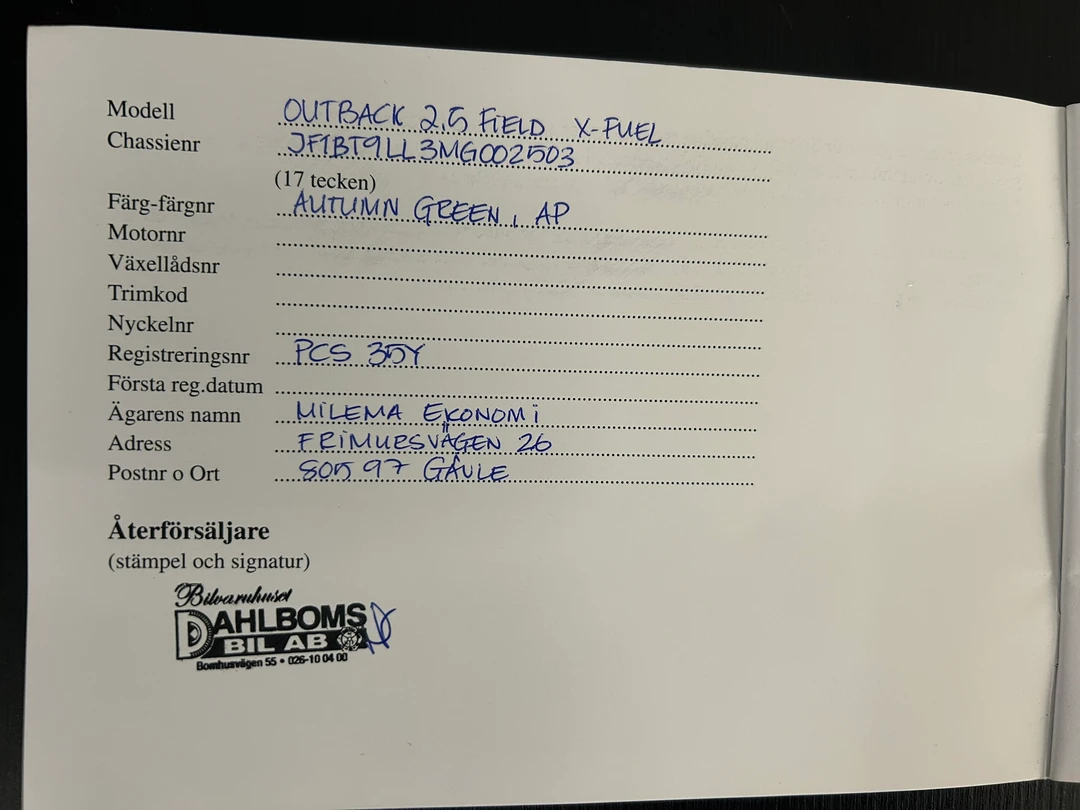 Modell OUTBACK 2.5 FiELD X-FUEL
Chassienr JF1BT9LL3MG002503
(17 tecken)
Färg-färgnr AUTUMN GREEN, AP
Motornr
Växellådsnr
Trimkod
Nyckelnr
Registreringsnr PCS 35Y
Första reg.datum
Ägarens namn MiLEMA EKONOMi
Adress FRiMURSVÄGEN 26
Postnr o Ort 805 97 GÄVLE
Återförsäljare
(stämpel och signatur)
Bilvaruhuset
DAHLBOMS
BIL AB
Bomhusvägen 55 • 026-10 04 00